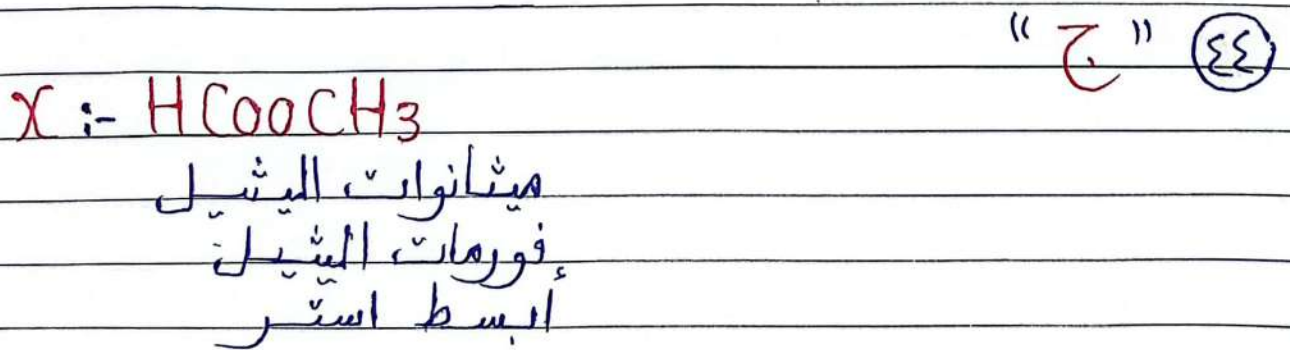 ٤٤ "ج"
X :- HCOOCH3
ميثانوات الميثيل
فورمات الميثيل
أبسط استر